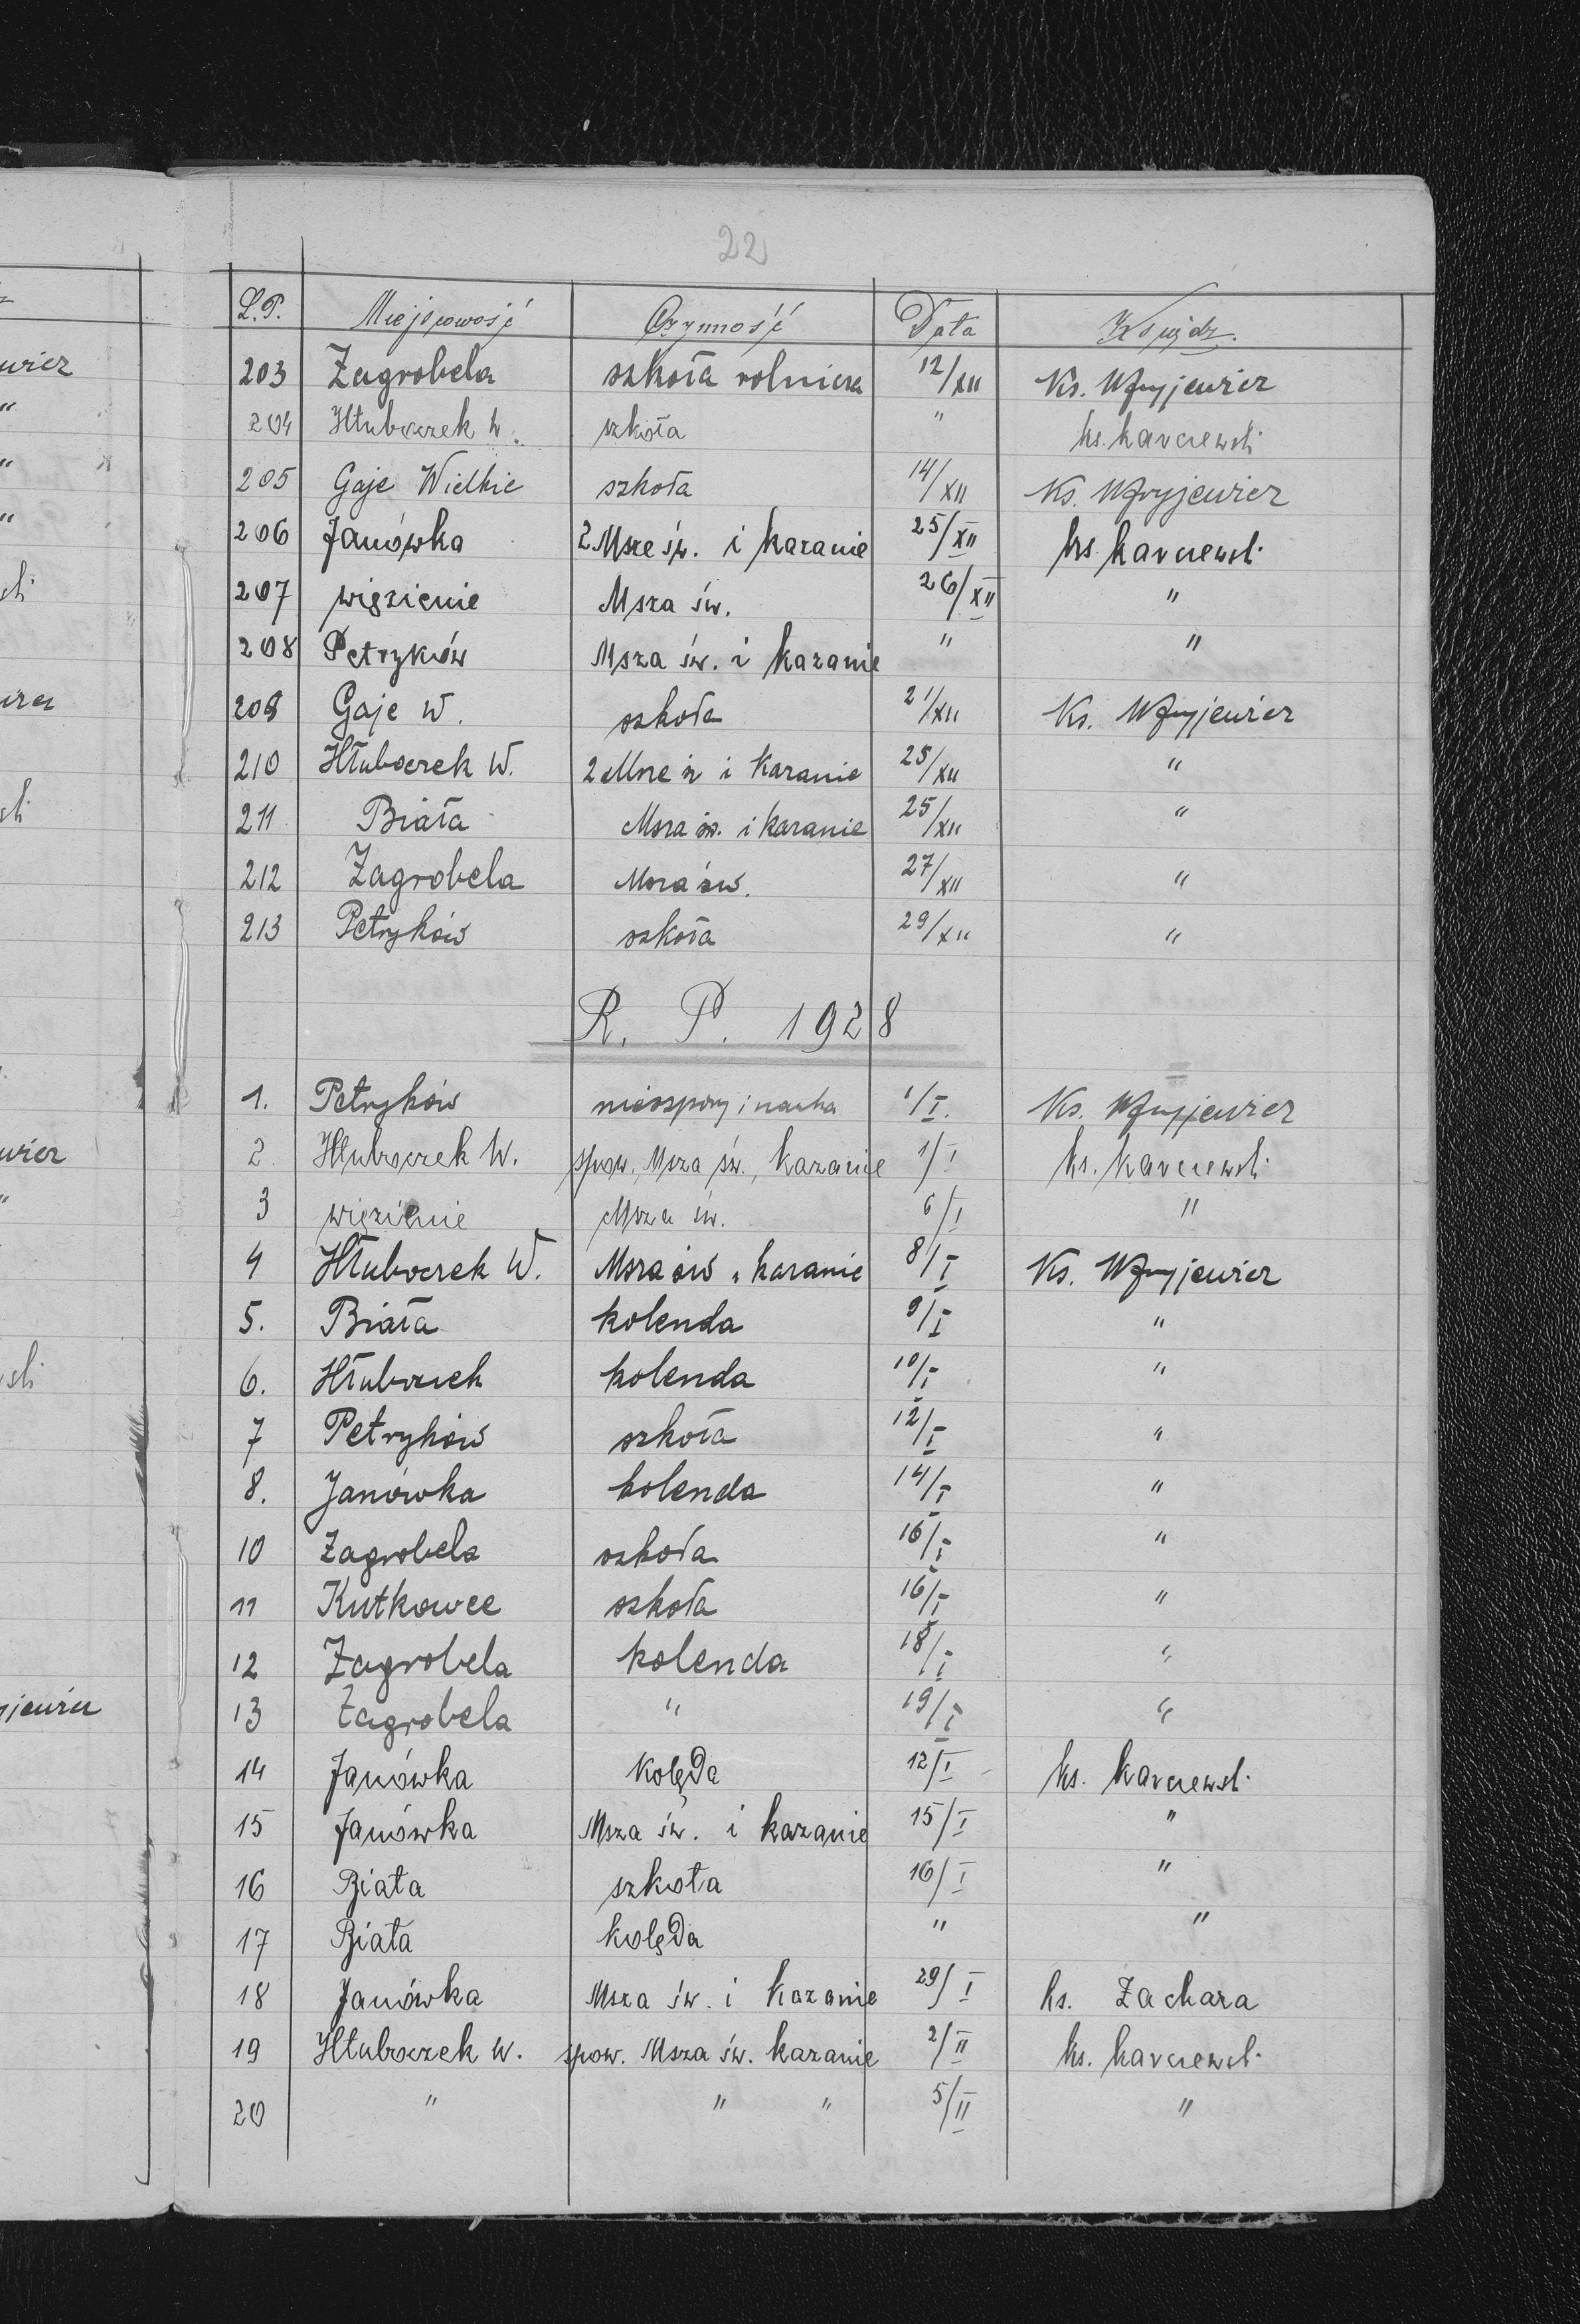 22
L.P. Miejscowość Czynność Data Ksiądz.
203 Zagrobela szkoła rolnicza 12/XII Ks.
204 Hłuboczek W. szkoła " ks. Karczewski
205 Gaje Wielkie szkoła 14/XII Ks.
206 Janówka 2 Msze św. i kazanie 25/XII ks. Karczewski
207 więzienie Msza św. 26/XII "
208 Petryków Msza św. i kazanie " "
209 Gaje W. szkoła 21/XII Ks.
210 Hłuboczek W. 2 Msze św i Kazanie 25/XII "
211 Biała Msza św. i kazanie 25/XII "
212 Zagrobela Msza św. 27/XII "
213 Petryków szkoła 29/XII "
R. P. 1928
1. Petryków nieszpory i nauka 1/I. Ks.
2. Hłuboczek W. spow., Msza św., kazanie 1/I ks. Karczewski
3 więzienie Msza św. 6/I "
4 Hłuboczek W. Msza św i kazanie 8/I Ks.
5. Biała kolenda 9/I "
6. Hłuboczek kolenda 10/I "
7 Petryków szkoła 12/I "
8. Janówka kolenda 14/I "
10 Zagrobela szkoła 16/I "
11 Kutkowce szkoła 16/I "
12 Zagrobela kolenda 18/I "
13 Zagrobela " 19/I "
14 Janówka Kolęda 12/I ks. Karczewski
15 Janówka Msza św. i kazanie 15/I "
16 Biała szkoła 16/I "
17 Biała kolęda " "
18 Janówka Msza św. i kazanie 29/I ks. Zachara
19 Hłuboczek W. spow. Msza św. kazanie 2/II ks. Karczewski
20 " " " 5/II "